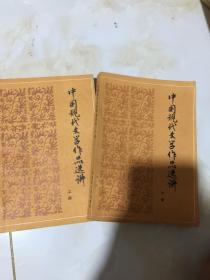 中国现代文学作品选讲
上册
中国现代文学作品选讲
下册